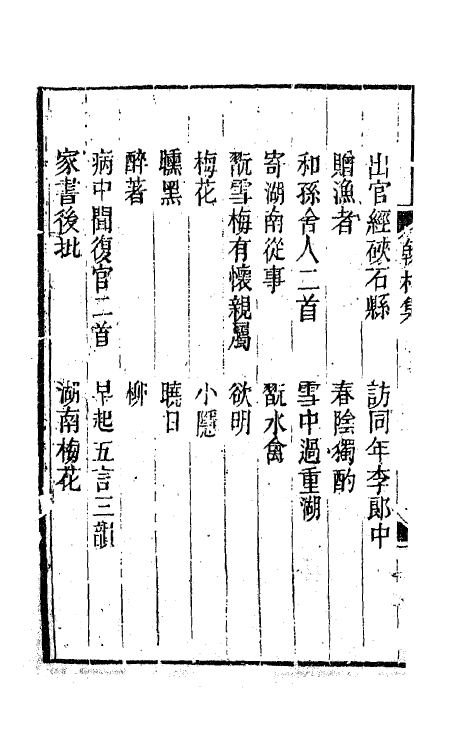 韓林集
出官經硤石縣　訪同年李郎中
贈漁者　春陰獨酌
和孫舍人二首　雪中過重湖
寄湖南從事　翫水禽
翫雪梅有懷親屬　欲明
梅花　小隱
曛黑　曉日
醉著　柳
病中聞復官二首　早起五言三韻
家書後批　湖南梅花